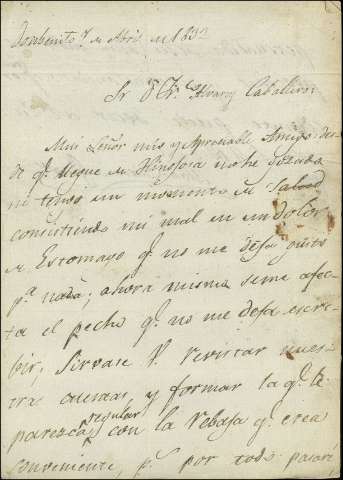 Donbenito 7 de Abril de 183
Sr Dn Alvarez Caballero:
Mui Señor mio y Apreciable Amigo des
de qe. llegue de Hinojosa no he gozado
ni tengo un momento de Salud
consistiendo mi mal en un dolor
de Estomago qe. no me deja gusto
pa. nada; ahora mismo seme afec-
ta el pecho qe. no me deja escri-
bir; Sirvase V. revistar nues-
tra cuenta, y formar la qe. le
paresca regular con la rebaja qe. crea
conveniente, ps. por todo pasaré